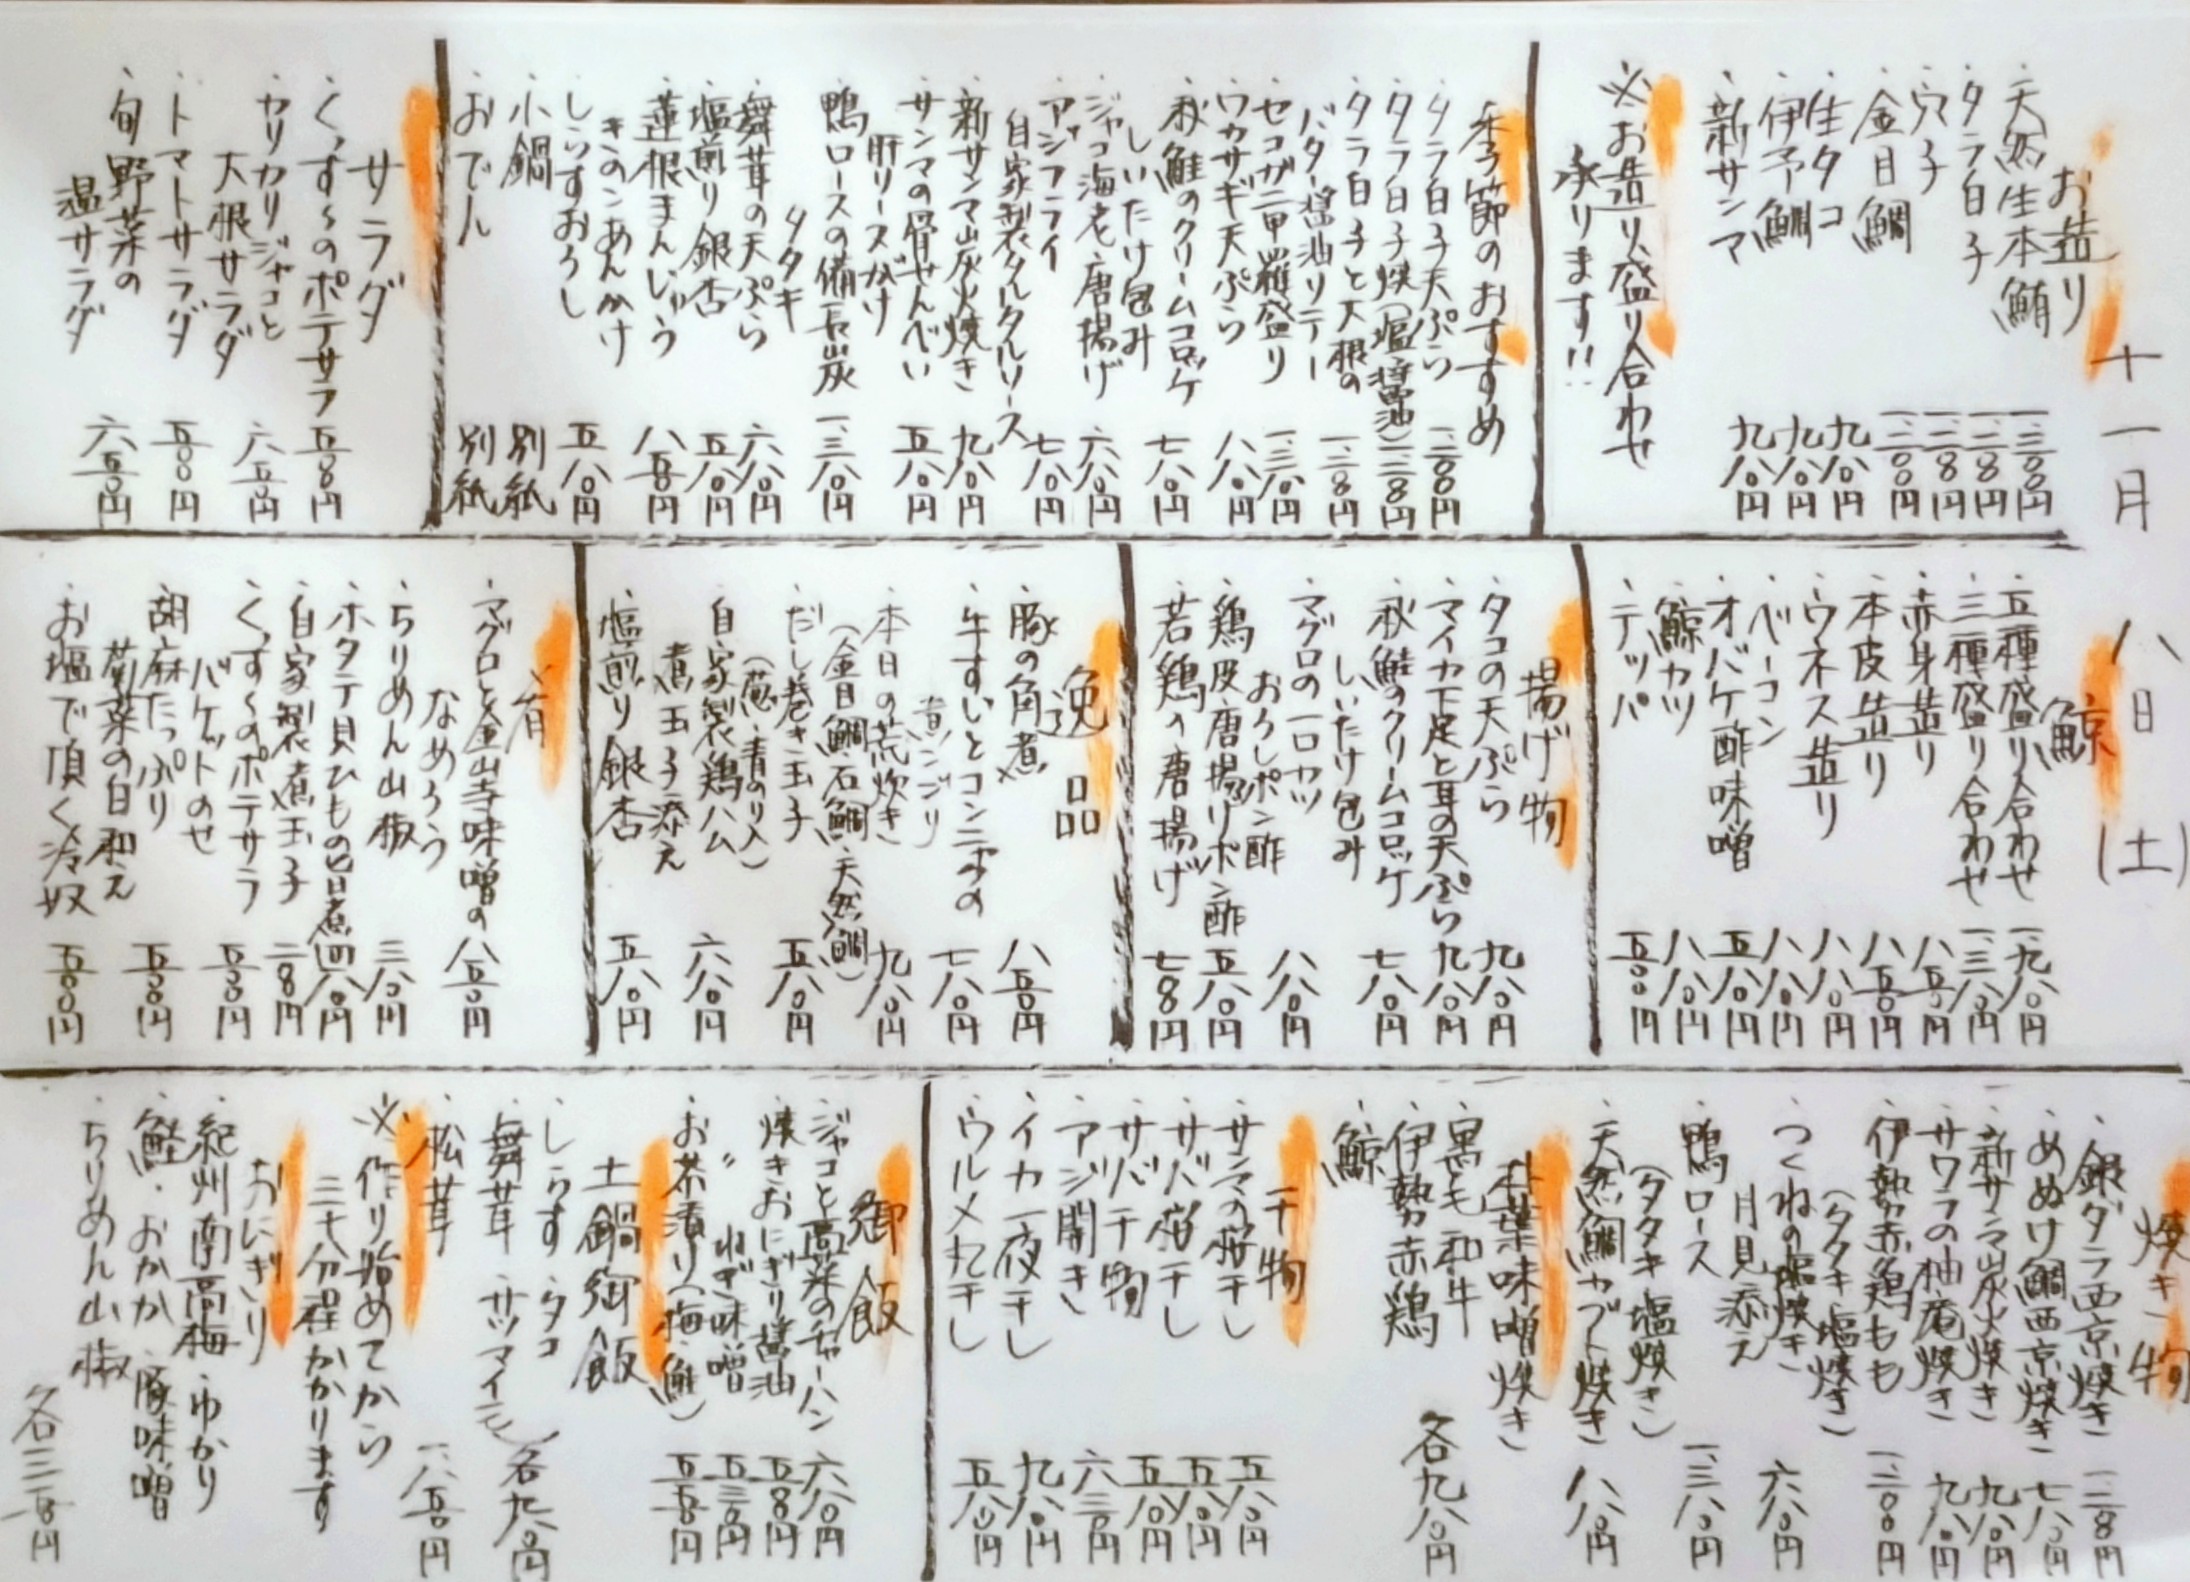 十一月 八日(土)
お造り
・天然生本鮪 一、三〇〇円
・タラ白子 一、二八〇円
・穴子 一、二八〇円
・金目鯛 一、二〇〇円
・生タコ 九八〇円
・伊予鯛 九八〇円
・新サンマ 九八〇円
※お造り盛り合わせ
承ります!!
季節のおすすめ
・タラ白子天ぷら 一、二〇〇円
・タラ白子焼(塩・醤油) 一、二八〇円
・タラ白子と大根の
バター醤油ソテー 一、二八〇円
・セコガニ甲羅盛り 一、三八〇円
・ワカサギ天ぷら 八八〇円
・秋鮭のクリームコロッケ
しいたけ包み 七八〇円
・ジャコ海老唐揚げ 六八〇円
・アジフライ
自家製タルタルソース 七八〇円
・新サンマ炭火焼き 九八〇円
・サンマの骨せんべい
肝ソースがけ 五八〇円
・鴨ロースの備長炭
タタキ 一、三八〇円
・舞茸の天ぷら 六八〇円
・塩煎り銀杏 五八〇円
・蓮根まんじゅう
きのこあんかけ 八五〇円
・しらすおろし 五八〇円
・小鍋 別紙
・おでん 別紙
サラダ
・くっすーのポテサラ 五〇〇円
・カリカリジャコと
大根サラダ 六五〇円
・トマトサラダ 五〇〇円
・旬野菜の
温サラダ 六五〇円
鯨
・五種盛り合わせ 一、九八〇円
・三種盛り合わせ 一、三八〇円
・赤身造り 八五〇円
・本皮造り 八五〇円
・ウネス造り 八八〇円
・ベーコン 八八〇円
・オバケ酢味噌 五八〇円
・鯨カツ 八八〇円
・テッパ 五〇〇円
揚げ物
・タコの天ぷら 九八〇円
・マイカ下足と耳の天ぷら 九八〇円
・秋鮭のクリームコロッケ
しいたけ包み 七八〇円
・マグロの一口カツ
おろしポン酢 八八〇円
・鶏皮唐揚げポン酢 五八〇円
・若鶏の唐揚げ 七八〇円
逸品
・豚の角煮 八五〇円
・牛すじとコンニャクの
煮コゴリ 七八〇円
・本日の荒炊き
(金目鯛・石鯛・天然鯛) 九八〇円
・だし巻き玉子
(葱・青のり入) 五八〇円
・自家製鶏ハム
煮玉子添え 六八〇円
・塩煎り銀杏 五八〇円
肴
・マグロと金山寺味噌の
なめろう 八五〇円
・ちりめん山椒 三八〇円
・ホタテ貝ひもの旨煮 四八〇円
・自家製煮玉子 二八〇円
・くっすーのポテサラ
バケットのせ 五五〇円
・胡麻たっぷり
菊菜の白和え 五五〇円
・お塩で頂く冷奴 五〇〇円
焼き物
・銀ダラ西京焼き 一、二八〇円
・めぬけ鯛西京焼き 七八〇円
・新サンマ炭火焼き 九八〇円
・サワラの柚庵焼き 九八〇円
・伊勢赤鶏もも
(タタキ・塩焼き) 一、二〇〇円
・つくねの塩焼き
月見添え 六八〇円
・鴨ロース
(タタキ・塩焼き) 一、三八〇円
・天然鯛カブト焼き 八八〇円
朴葉味噌焼き
・黒毛和牛
・伊勢赤鶏
・鯨 各九八〇円
干物
・サンマの桜干し 五八〇円
・サバ桜干し 五八〇円
・サバ干物 五八〇円
・アジ開き 六三〇円
・イカ一夜干し 九八〇円
・ウルメ丸干し 五八〇円
御飯
・ジャコと高菜のチャーハン 六八〇円
・焼きおにぎり醤油 五〇〇円
・〃 ねぎ味噌 五三〇円
・お茶漬け(梅・鮭) 五五〇円
土鍋御飯
・しらす・タコ
・舞茸・サツマイモ 各九八〇円
・松茸 一、八五〇円
※作り始めてから
三十分程かかります
おにぎり
・紀州南高梅・ゆかり
・鮭・おかか・豚味噌
・ちりめん山椒
各三五〇円